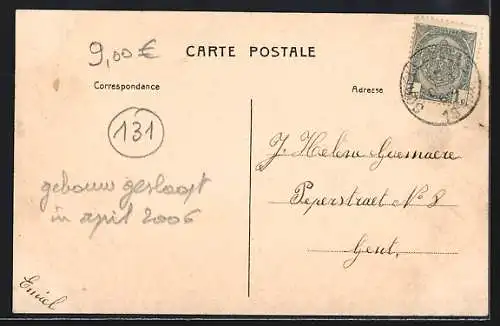 9,00 €
CARTE POSTALE
Correspondance
Adresse
131
J. Helene
Peperstraet No 8
Gent.
gebouw gesloopt
in april 2006
Emiel